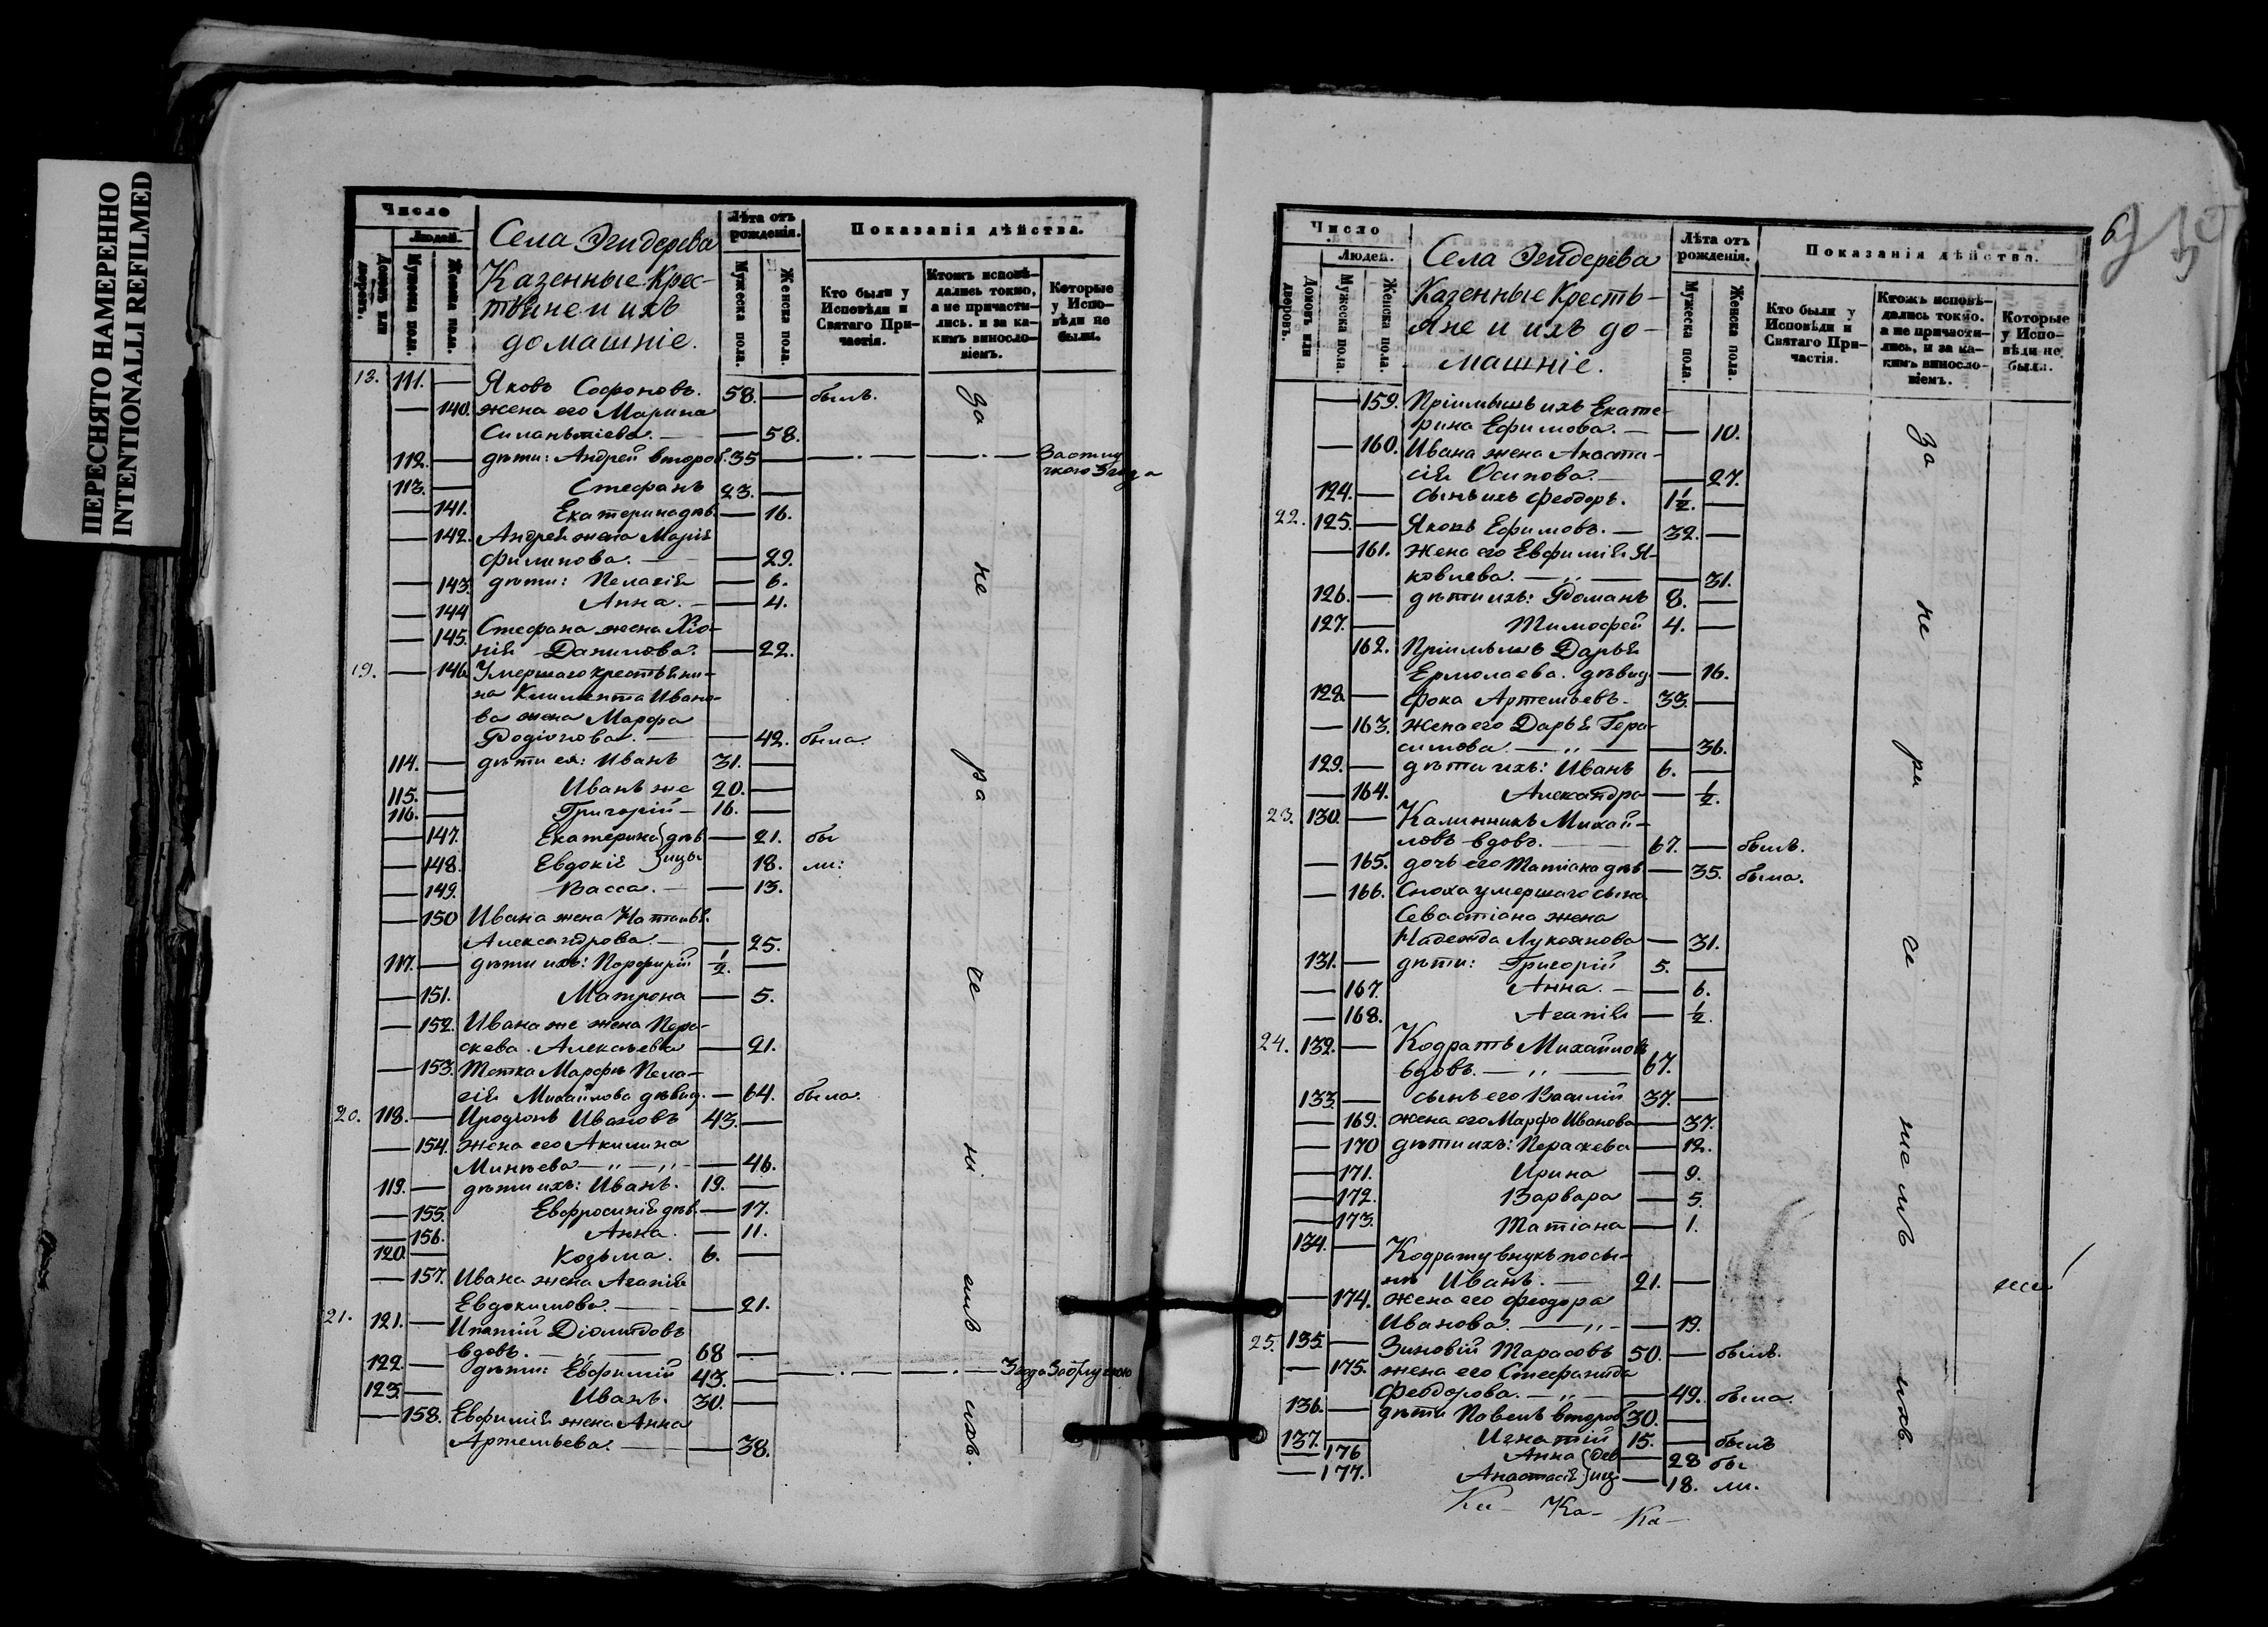 ПЕРЕСНЯТО НАМЕРЕННО
INTENTIONALLI REFILMED
Число
Людей.
Домовъ или дворовъ.
Мужеска пола.
Женска пола.
Села Эгидерева
Казенные Крес-
тьяне и ихъ
домашніе.
Лѣта отъ рожденія.
Мужеска пола.
Женска пола.
Показанія дѣйства.
Кто были у Исповѣди и Святаго При-частія.
Ктожъ исповѣ-дались токмо, а не причасти-лись. и за ка-кимъ винословіемъ.
Которые у Испо-вѣди не были.
111. — Яковъ Софоновъ. 58. — былъ.
— 140. жена его Марина
Силантіева. — — 58.
112. — дѣти: Андрей второб. 35 —
113. — Стефанъ 23. —
— 141. Екатерина дѣв. — 16.
— 142. Андрея жена Марія
Филипова. — — 29.
— 143. дѣти: Пелагія — 6.
— 144 Анна. — — 4.
— 145. Стефана жена Хіо-
нія Данилова. — 22.
19. — 146. Умершаго крестьяни-
на Климента Ивано-
ва жена Марфа
Родіонова. — — 42. была.
114. — дѣти ея: Иванъ 31. —
115. — Иванъ же 20. —
116. — Григорій — 16. —
— 147. Екатерина } дѣв — 21. бы
— 148. Евдокія } ицы 18. ли:
— 149. Васса. — — 13.
— 150 Ивана жена Наталья
Александрова. — — 25.
117. — дѣти ихъ: Порфирій ½. —
— 151. Матрона — 5.
— 152. Ивана же жена Пара-
скева Алексѣева — 21.
— 153. Тетка Марфы Пела-
гія Михайлова дѣвиц. — 64. была.
20. 118. — Иродіонъ Ивановъ 43. —
— 154. жена его Акилина
Минѣева — „ — „ — 46.
119. — дѣти ихъ: Иванъ. 19. —
— 155. Евфросинія дѣв. — 17.
— 156. Анна. — 11.
120. — Козьма. 6. —
— 157. Ивана жена Агапія
Евдокимова. — — 21.
21. 121. — Ипатій Діомидовъ
вдовъ. — „ — 68 —
122. — дѣти: Евфимій 43. — 3 года
123. — Иванъ. 30. —
— 158. Евфимія жена Анна
Артемьева. — — 38.
за не ра че ні емъ ихъ.
Число
Людей.
Домовъ или дворовъ.
Мужеска пола.
Женска пола.
Села Эгидерева
Казенные Кресть-
яне и ихъ до-
машніе.
Лѣта отъ рожденія.
Мужеска пола.
Женска пола.
Показанія дѣйства.
Кто были у Исповѣди и Святаго При-частія.
Ктожъ исповѣ-дались токмо, а не причасти-лись, и за ка-кимъ винословіемъ.
Которые у Испо-вѣди не были.
— 159. Пріимышъ ихъ Екате-
рина Ефимова. — — 10.
— 160. Ивана жена Анаста-
сія Осипова. — — 27.
124. — сынъ ихъ Феодоръ. 1½. —
22. 125. — Яковъ Ефимовъ. — 32. —
— 161. жена его Евфимія Я-
ковлева. — „ — — 31.
126. — дѣти ихъ: Романъ 8. —
127. — Тимофей 4. —
162. Пріимышъ Дарья
Ермолаева. дѣвиц. — 16.
128. — Фока Артемьевъ. 33. —
— 163. жена его Дарья Гера-
симова. — „ — — 36.
129. — дѣти ихъ: Иванъ 6. —
— 164. Александра — ½.
23. 130. — Калинникъ Михай-
ловъ вдовъ. — 67. — былъ.
— 165. дочь его Татіана дѣв — 35. была.
— 166. Сноха умершаго сына
Севастіана жена
Надежда Лукоянова — 31.
131. — дѣти: Григорій 5. —
— 167. Анна. — — 6.
— 168. Агапія — ½.
24. 132. — Кодратъ Михайловъ
вдовъ. — „ — 67.
133. — сынъ его Василій 37. —
— 169. жена его Марфа Иванова — 37.
— 170 дѣти ихъ: Параскева — 12.
— 171. Ирина — 9.
— 172. Варвара — 5.
— 173. Татіана — 1.
134. — Кодрату внукъ по сы-
нѣ Иванъ. — 21. —
— 174. жена его Феодора
Иванова. — „ — — 19.
25. 135 — Зиновій Тарасовъ 50. — былъ.
— 175. жена его Стефанида
Феодорова. — „ — 49. была.
136. — дѣти Павелъ второб 30. —
137. — Игнатій 15. — былъ
— 176 Анна } дѣв — 28 бы
— 177. Анастасія } иц. — 18. ли.
за не ра че ніемъ ихъ.